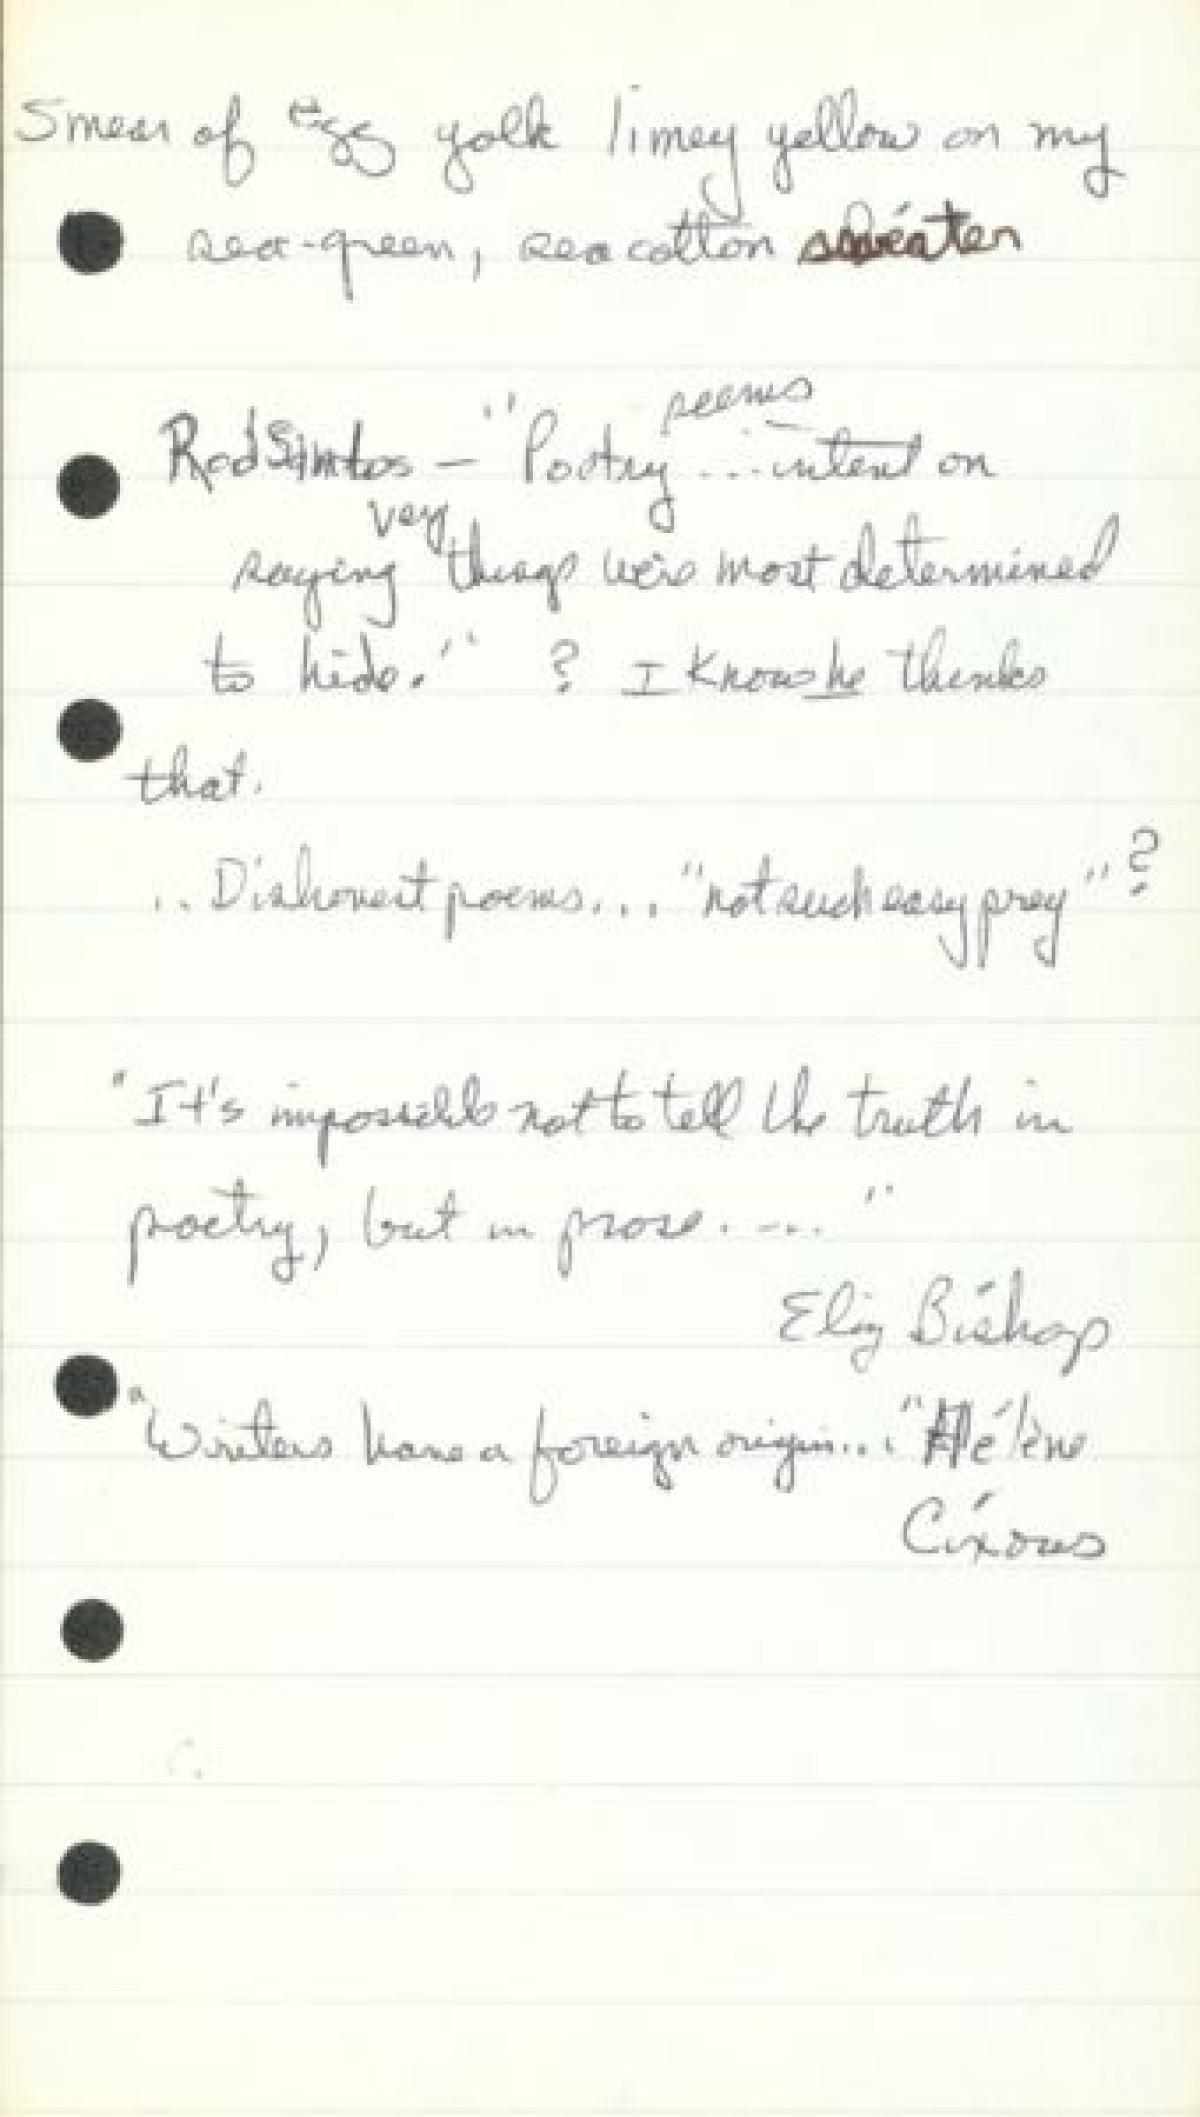 Smear of egg yolk limey yellow on my
sea-green, sea cotton sweater
Rod Santos — "Poetry seems ... intent on
saying very things we're most determined
to hide." ? I know he thinks
that.
.. Dishonest poems... "not such easy prey" ?
"It's impossible not to tell the truth in
poetry, but in prose. ...."
Eliz Bishop
"Writers have a foreign origin..." Hélène
Cixous